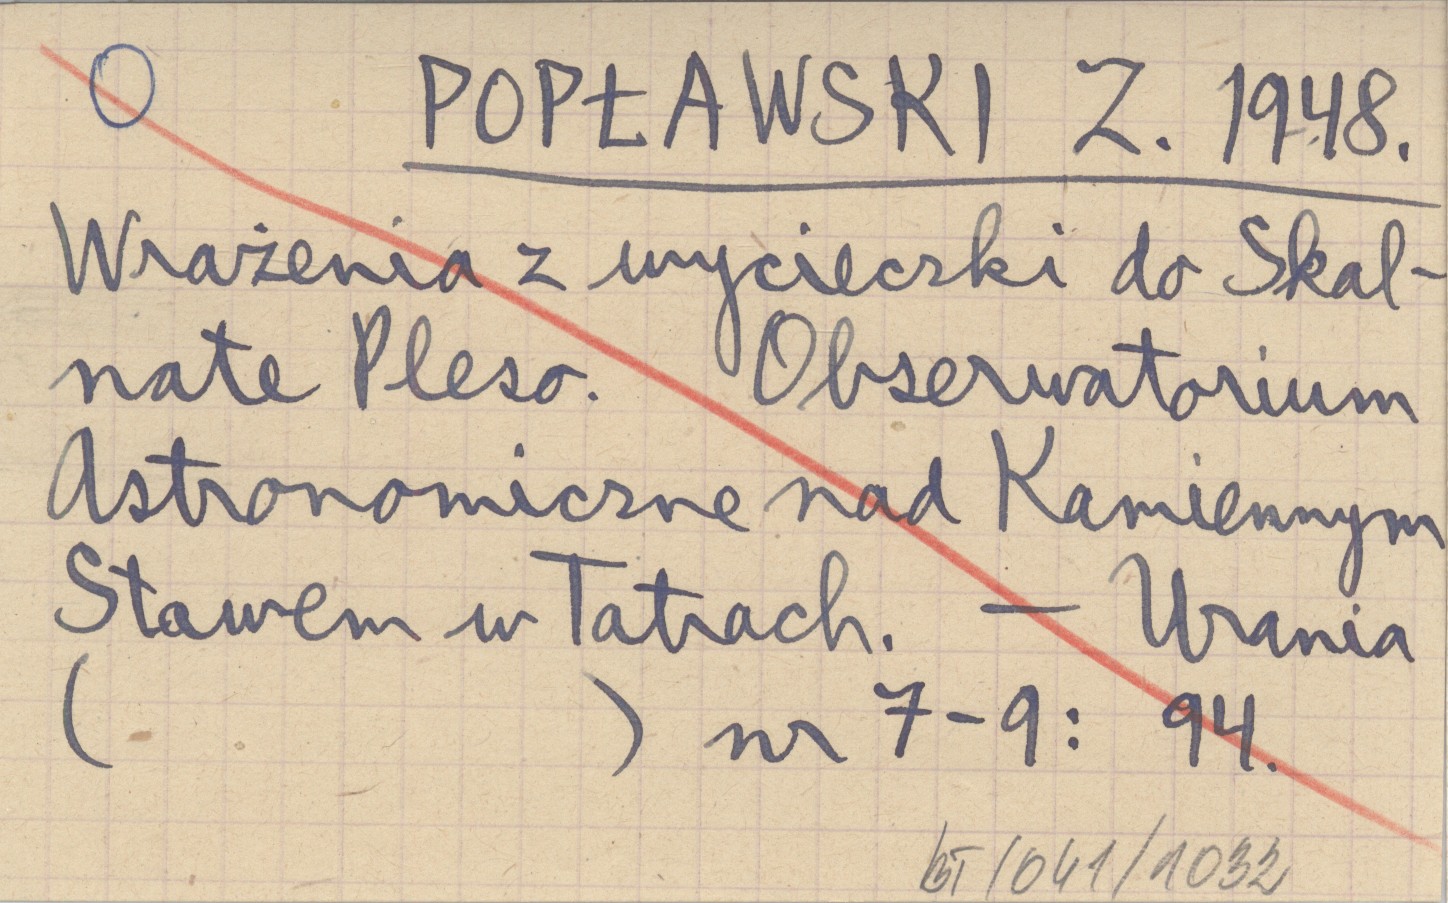 O POPŁAWSKI Z. 1948.
Wrażenia z wycieczki do Skal-
nate Pleso. Obserwatorium
Astronomiczne nad Kamiennym
Stawem w Tatrach. — Urania
( ) nr 7-9: 94.
BT/041/1032